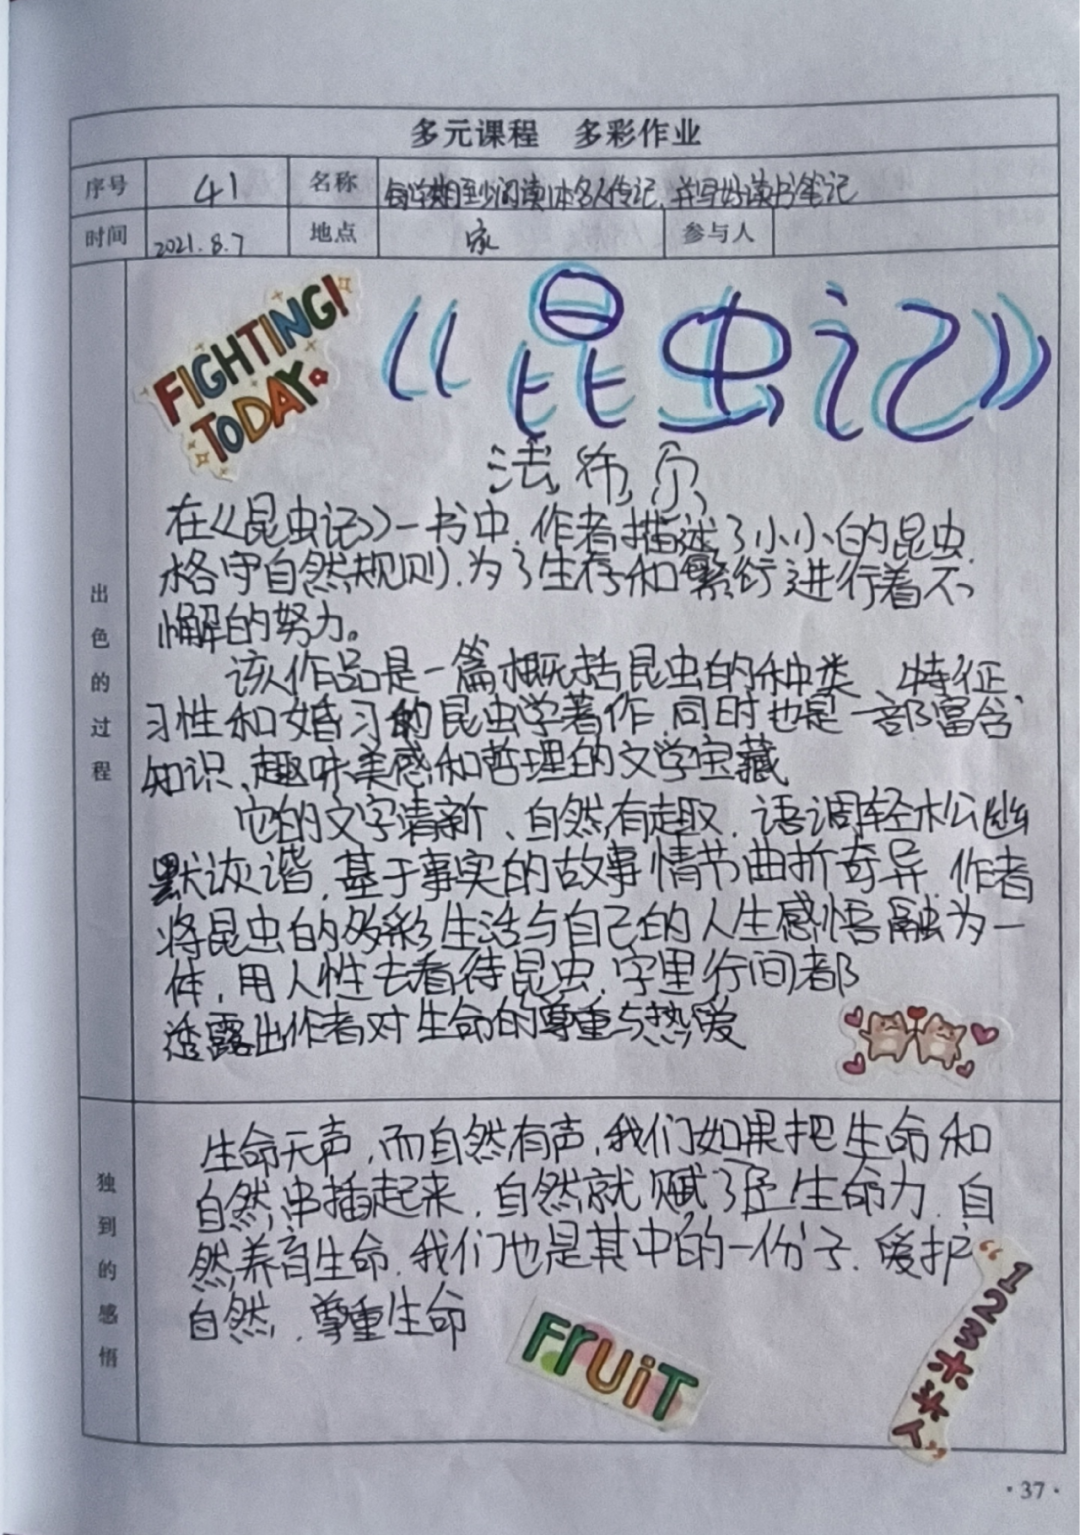 多元课程 多彩作业
序号 41 名称 每学期至少阅读1本名人传记，并写好读书笔记
时间 2021.8.7 地点 家 参与人
出色的过程
FIGHTING!
TODAY
《昆虫记》
法布尔
在《昆虫记》一书中，作者描述了小小的昆虫
格守自然规则，为了生存和繁衍进行着不
懈的努力。
该作品是一篇概括昆虫的种类、特征
习性和婚习的昆虫学著作，同时也是一部富含
知识、趣味美感和哲理的文学宝藏
它的文字清新、自然有趣，语调轻松幽
默诙谐，基于事实的故事情节曲折奇异，作者
将昆虫的多彩生活与自己的人生感悟融为一
体，用人性去看待昆虫，字里行间都
透露出作者对生命的尊重与热爱
独到的感悟
生命无声，而自然有声，我们如果把生命和
自然串插起来，自然就赋了生命力，自
然养育生命，我们也是其中的一份子，爱护
自然，尊重生命
FRUIT
“123木头人”
·37·